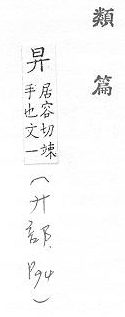 類篇
居容切竦
手也文一
(廾部, P94)